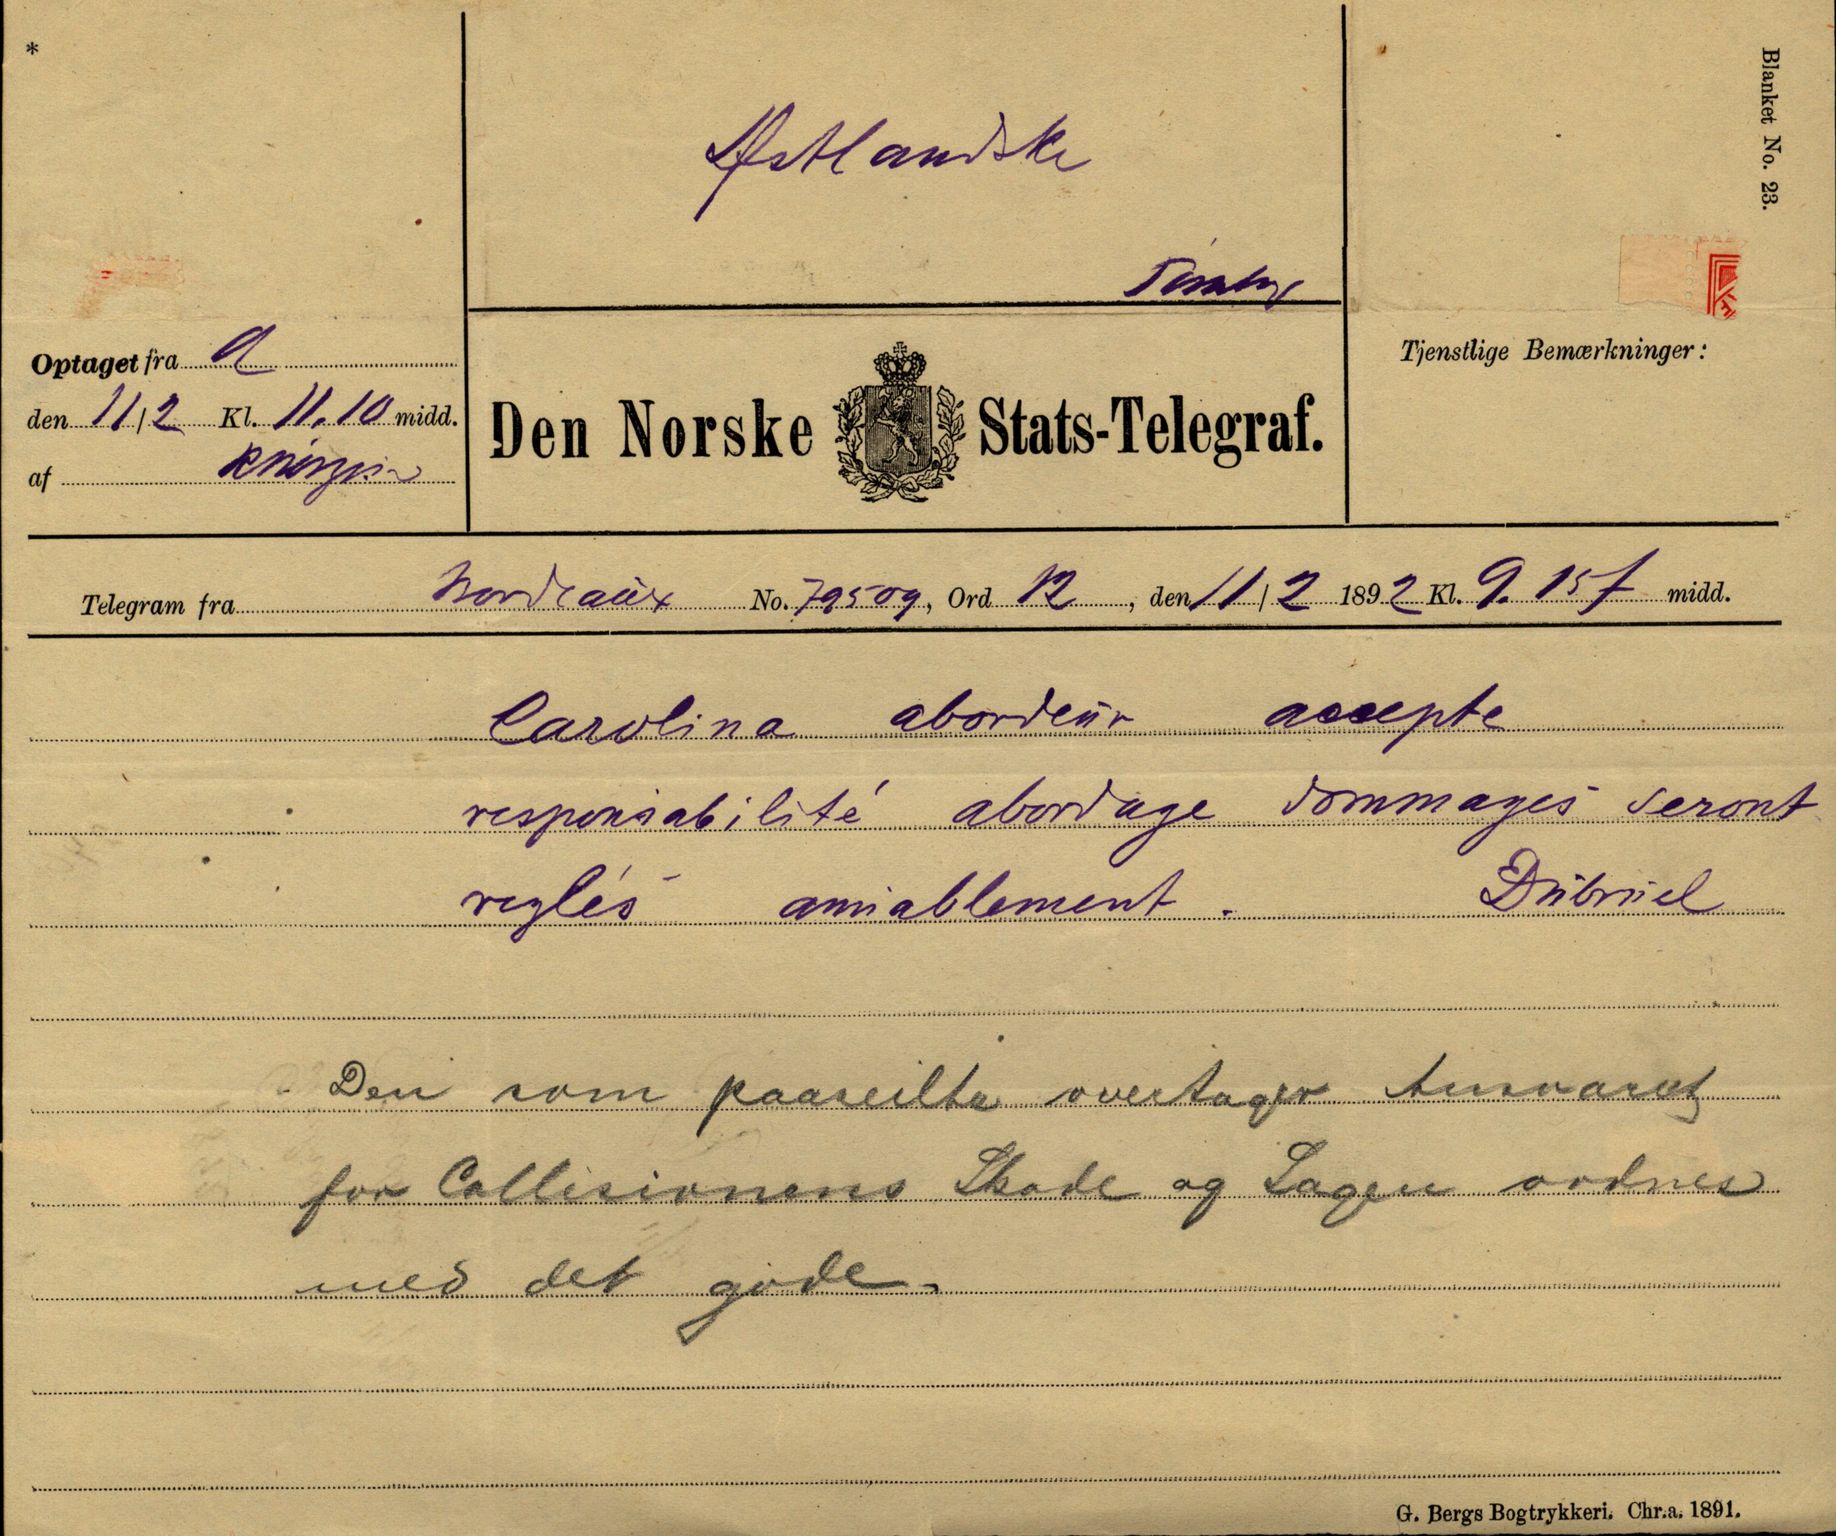 *
Blanket No. 23.
Østlandske
Optaget fra a
den 11/2 Kl. 11.10 midd.
af
Den Norske Stats-Telegraf.
Tjenstlige Bemærkninger:
Telegram fra Bordeaux No. 79509, Ord 12, den 11/2 1892 Kl. 9.15 f midd.
Carolina abordeur accepte
responsabilité abordage dommages seront
reglés amiablement. Dubruel
Den som paaseilte overtager Ansvaret
for Collisionens Skade og Sagen ordnes
med det gode.
G. Bergs Bogtrykkeri. Chr.a. 1891.